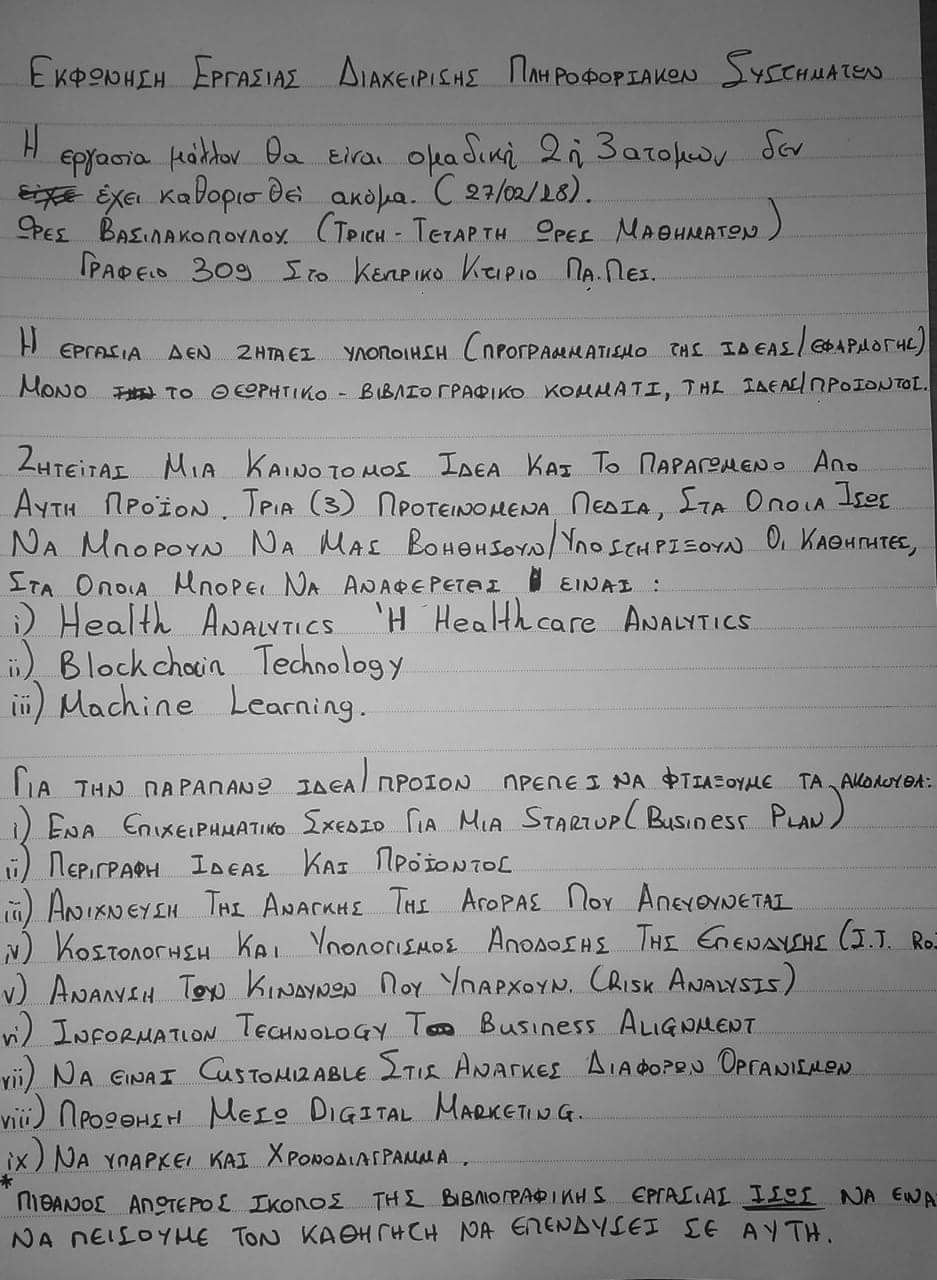 ΕΚΦΩΝΗΣΗ ΕΡΓΑΣΙΑΣ ΔΙΑΧΕΙΡΙΣΗΣ ΠΛΗΡΟΦΟΡΙΑΚΩΝ ΣΥΣΤΗΜΑΤΩΝ
Η εργασία μάλλον θα είναι ομαδική 2 ή 3 ατόμων δεν
έχει καθορισθεί ακόμα. (27/02/18).
ΩΡΕΣ ΒΑΣΙΛΑΚΟΠΟΥΛΟΥ. (ΤΡΙΤΗ - ΤΕΤΑΡΤΗ ΩΡΕΣ ΜΑΘΗΜΑΤΩΝ)
ΓΡΑΦΕΙΟ 309 ΣΤΟ ΚΕΝΤΡΙΚΟ ΚΤΙΡΙΟ ΠΑ.ΠΕΙ.
Η ΕΡΓΑΣΙΑ ΔΕΝ ΖΗΤΑΕΙ ΥΛΟΠΟΙΗΣΗ (ΠΡΟΓΡΑΜΜΑΤΙΣΜΟ ΤΗΣ ΙΔΕΑΣ/ΕΦΑΡΜΟΓΗΣ)
ΜΟΝΟ ΤΟ ΘΕΩΡΗΤΙΚΟ - ΒΙΒΛΙΟΓΡΑΦΙΚΟ ΚΟΜΜΑΤΙ, ΤΗΣ ΙΔΕΑΣ/ΠΡΟΙΟΝΤΟΣ.
ΖΗΤΕΙΤΑΙ ΜΙΑ ΚΑΙΝΟΤΟΜΟΣ ΙΔΕΑ ΚΑΙ ΤΟ ΠΑΡΑΓΩΜΕΝΟ ΑΠΟ
ΑΥΤΗ ΠΡΟΪΟΝ. ΤΡΙΑ (3) ΠΡΟΤΕΙΝΟΜΕΝΑ ΠΕΔΙΑ, ΣΤΑ ΟΠΟΙΑ ΙΣΩΣ
ΝΑ ΜΠΟΡΟΥΝ ΝΑ ΜΑΣ ΒΟΗΘΗΣΟΥΝ/ΥΠΟΣΤΗΡΙΞΟΥΝ ΟΙ ΚΑΘΗΓΗΤΕΣ,
ΣΤΑ ΟΠΟΙΑ ΜΠΟΡΕΙ ΝΑ ΑΝΑΦΕΡΕΤΑΙ ΕΙΝΑΙ :
i) Health ANALYTICS Ή Healthcare ANALYTICS
ii) Blockchain Technology
iii) Machine Learning.
ΓΙΑ ΤΗΝ ΠΑΡΑΠΑΝΩ ΙΔΕΑ/ΠΡΟΙΟΝ ΠΡΕΠΕΙ ΝΑ ΦΤΙΑΞΟΥΜΕ ΤΑ ΑΚΟΛΟΥΘΑ:
i) ΕΝΑ ΕΠΙΧΕΙΡΗΜΑΤΙΚΟ ΣΧΕΔΙΟ ΓΙΑ ΜΙΑ STARTUP (BUSINESS PLAN)
ii) ΠΕΡΙΓΡΑΦΗ ΙΔΕΑΣ ΚΑΙ ΠΡΟΪΟΝΤΟΣ
iii) ΑΝΙΧΝΕΥΣΗ ΤΗΣ ΑΝΑΓΚΗΣ ΤΗΣ ΑΓΟΡΑΣ ΠΟΥ ΑΠΕΥΘΥΝΕΤΑΙ
iv) ΚΟΣΤΟΛΟΓΗΣΗ ΚΑΙ ΥΠΟΛΟΓΙΣΜΟΣ ΑΠΟΔΟΣΗΣ ΤΗΣ ΕΠΕΝΔΥΣΗΣ (I.T. Ro.
v) ΑΝΑΛΥΣΗ ΤΩΝ ΚΙΝΔΥΝΩΝ ΠΟΥ ΥΠΑΡΧΟΥΝ. (RISK ANALYSIS)
vi) INFORMATION TECHNOLOGY TO BUSINESS ALIGNMENT
vii) ΝΑ ΕΙΝΑΙ CUSTOMIZABLE ΣΤΙΣ ΑΝΑΓΚΕΣ ΔΙΑΦΟΡΩΝ ΟΡΓΑΝΙΣΜΩΝ
viii) ΠΡΟΩΘΗΣΗ ΜΕΣΩ DIGITAL MARKETING.
ix) ΝΑ ΥΠΑΡΧΕΙ ΚΑΙ ΧΡΟΝΟΔΙΑΓΡΑΜΜΑ.
*ΠΙΘΑΝΟΣ ΑΠΩΤΕΡΟΣ ΣΚΟΠΟΣ ΤΗΣ ΒΙΒΛΙΟΓΡΑΦΙΚΗΣ ΕΡΓΑΣΙΑΣ ΙΣΩΣ ΝΑ ΕΙΝΑ
ΝΑ ΠΕΙΣΟΥΜΕ ΤΟΝ ΚΑΘΗΓΗΤΗ ΝΑ ΕΠΕΝΔΥΣΕΙ ΣΕ ΑΥΤΗ.